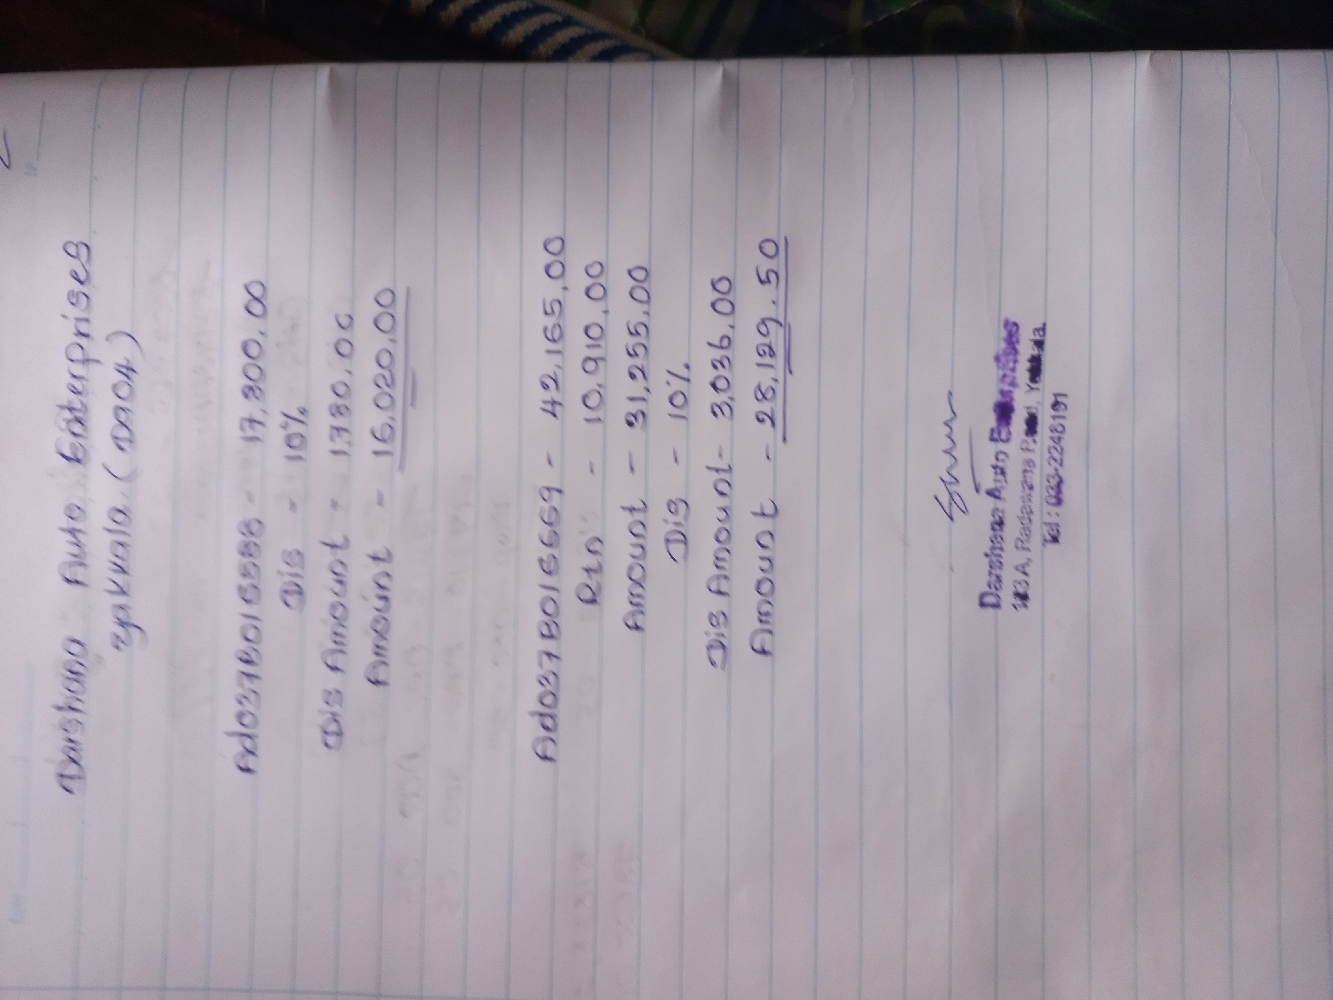 Darshana Auto Enterprises
Yakkala. (DA04)
Ad037B015888 - 17,800.00
Dis - 10%
Dis Amount - 1,780.00
Amount - 16,020.00
Ad037B016669 - 42,165.00
Rtn - 10,910.00
Amount - 31,255.00
Dis - 10%
Dis Amount - 3,036.00
Amount - 28,129.50
Darshana Auto Enterprises
Radawana Road, Yakkala.
Tel : 033-2248191